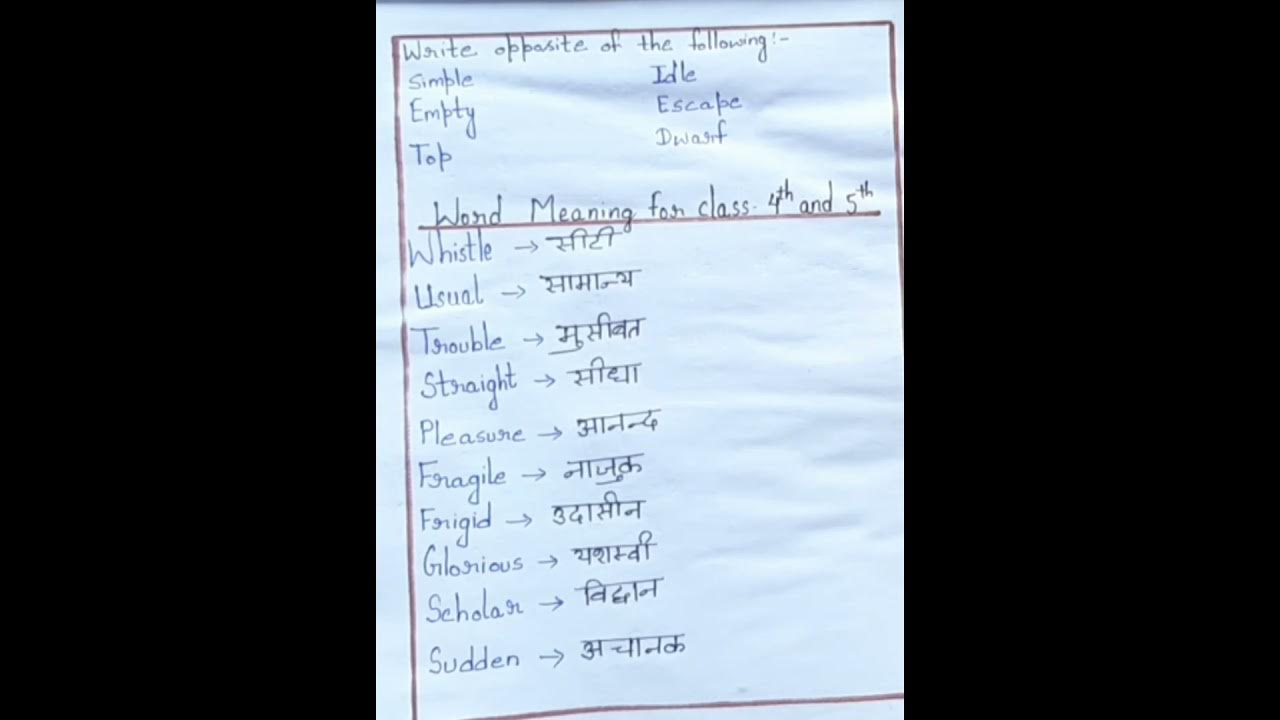 Write opposite of the following:-
Simple Idle
Empty Escape
Top Dwarf
Word Meaning for class. 4th and 5th
Whistle → सीटी
Usual → सामान्य
Trouble → मुसीबत
Straight → सीधा
Pleasure → आनन्द
Fragile → नाजुक
Frigid → उदासीन
Glorious → यशस्वी
Scholar → विद्वान
Sudden → अचानक